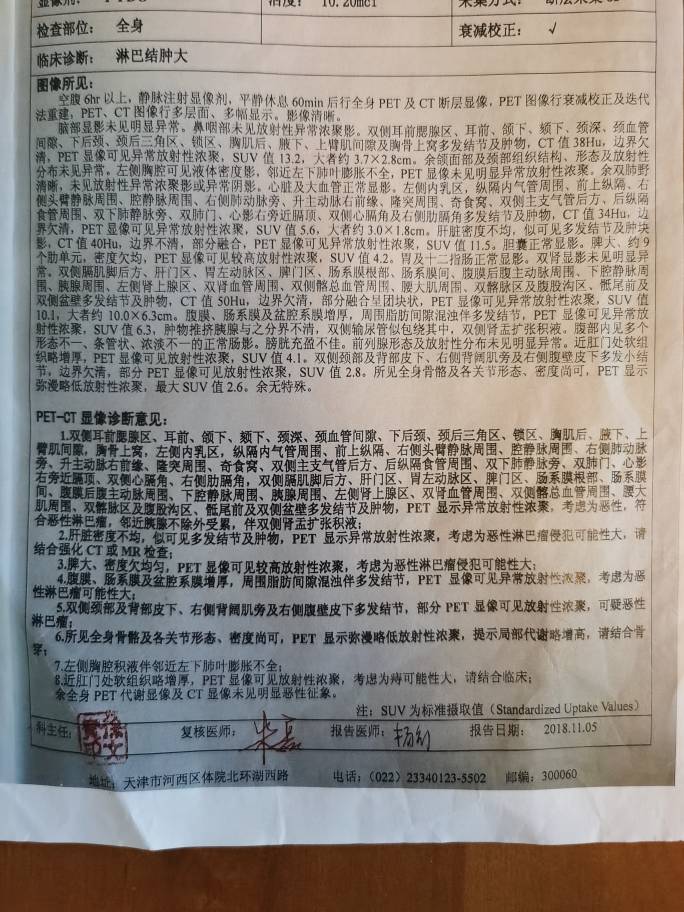 活度： 10.20mci
检查部位： 全身 衰减校正： √
临床诊断： 淋巴结肿大
图像所见：
空腹 6hr 以上，静脉注射显像剂，平静休息 60min 后行全身 PET 及 CT 断层显像，PET 图像行衰减校正及迭代
法重建，PET、CT 图像行多层面、多幅显示。影像清晰。
脑部显影未见明显异常。鼻咽部未见放射性异常浓聚影。双侧耳前腮腺区、耳前、颌下、颏下、颈深、颈血管
间隙、下后颈、颈后三角区、锁区、胸肌后、腋下、上臂肌间隙及胸骨上窝多发结节及肿物，CT 值 38Hu，边界欠
清，PET 显像可见异常放射性浓聚，SUV 值 13.2，大者约 3.7×2.8cm。余颌面部及颈部组织结构、形态及放射性
分布未见异常。左侧胸腔可见液体密度影，邻近左下肺叶膨胀不全，PET 显像未见明显异常放射性浓聚。余双肺野
清晰，未见放射性异常浓聚影或异常阴影。心脏及大血管正常显影。左侧内乳区，纵隔内气管周围、前上纵隔、右
侧头臂静脉周围、腔静脉周围、右侧肺动脉旁、升主动脉右前缘、隆突周围、奇食窝、双侧主支气管后方、后纵隔
食管周围、双下肺静脉旁、双肺门、心影右旁近膈顶、双侧心膈角及右侧肋膈角多发结节及肿物，CT 值 34Hu，边
界欠清，PET 显像可见异常放射性浓聚，SUV 值 5.6，大者约 3.0×1.8cm。肝脏密度不均，似可见多发结节及肿块
影，CT 值 40Hu，边界不清，部分融合，PET 显像可见异常放射性浓聚，SUV 值 11.5。胆囊正常显影。脾大、约 9
个肋单元，密度欠均，PET 显像可见较高放射性浓聚，SUV 值 4.2。胃及十二指肠正常显影。双肾显影未见明显异
常。双侧膈肌脚后方、肝门区、胃左动脉区、脾门区、肠系膜根部、肠系膜间、腹膜后腹主动脉周围、下腔静脉周
围、胰腺周围、左侧肾上腺区、双肾血管周围、双侧髂总血管周围、腰大肌周围、双髂脉区及腹股沟区、骶尾前及
双侧盆壁多发结节及肿物，CT 值 50Hu，边界欠清，部分融合呈团块状，PET 显像可见异常放射性浓聚，SUV 值
10.1，大者约 10.0×6.3cm。腹膜、肠系膜及盆腔系膜增厚，周围脂肪间隙混浊伴多发结节，PET 显像可见异常放
射性浓聚，SUV 值 6.3，肿物推挤胰腺与之分界不清，双侧输尿管似包绕其中，双侧肾盂扩张积液。腹部内见多个
形态不一、条管状、浓淡不一的正常肠影。膀胱充盈不佳。前列腺形态及放射性分布未见明显异常。近肛门处软组
织略增厚，PET 显像可见放射性浓聚，SUV 值 4.1。双侧颈部及背部皮下、右侧背阔肌旁及右侧腹壁皮下多发小结
节，边界欠清，部分 PET 显像可见放射性浓聚，SUV 值 2.8。所见全身骨骼及各关节形态、密度尚可，PET 显示
弥漫略低放射性浓聚，最大 SUV 值 2.6。余无特殊。
PET-CT 显像诊断意见：
1.双侧耳前腮腺区、耳前、颌下、颏下、颈深、颈血管间隙、下后颈、颈后三角区、锁区、胸肌后、腋下、上
臂肌间隙，胸骨上窝，左侧内乳区，纵隔内气管周围、前上纵隔、右侧头臂静脉周围、腔静脉周围、右侧肺动脉
旁、升主动脉右前缘、隆突周围、奇食窝、双侧主支气管后方、后纵隔食管周围、双下肺静脉旁、双肺门、心影
右旁近膈顶、双侧心膈角、右侧肋膈角，双侧膈肌脚后方、肝门区、胃左动脉区、脾门区、肠系膜根部、肠系膜
间、腹膜后腹主动脉周围、下腔静脉周围、胰腺周围、左侧肾上腺区、双肾血管周围、双侧髂总血管周围、腰大
肌周围、双髂脉区及腹股沟区、骶尾前及双侧盆壁多发结节及肿物，PET 显示异常放射性浓聚，考虑为恶性，符
合恶性淋巴瘤，邻近胰腺不除外受累，伴双侧肾盂扩张积液；
2.肝脏密度不均，似可见多发结节及肿物，PET 显示异常放射性浓聚，考虑为恶性淋巴瘤侵犯可能性大，请
结合强化 CT 或 MR 检查；
3.脾大、密度欠均匀，PET 显像可见较高放射性浓聚，考虑为恶性淋巴瘤侵犯可能性大；
4.腹膜、肠系膜及盆腔系膜增厚，周围脂肪间隙混浊伴多发结节，PET 显像可见异常放射性浓聚，考虑为恶
性淋巴瘤可能性大；
5.双侧颈部及背部皮下、右侧背阔肌旁及右侧腹壁皮下多发结节，部分 PET 显像可见放射性浓聚，可疑恶性
淋巴瘤；
6.所见全身骨骼及各关节形态、密度尚可，PET 显示弥漫略低放射性浓聚，提示局部代谢略增高，请结合骨
穿；
7.左侧胸腔积液伴邻近左下肺叶膨胀不全；
8.近肛门处软组织略增厚，PET 显像可见放射性浓聚，考虑为痔可能性大，请结合临床；
余全身 PET 代谢显像及 CT 显像未见明显恶性征象。
注：SUV 为标准摄取值（Standardized Uptake Values）
科主任： 复核医师： 报告医师： 报告日期： 2018.11.05
地址：天津市河西区体院北环湖西路 电话：（022）23340123-5502 邮编：300060